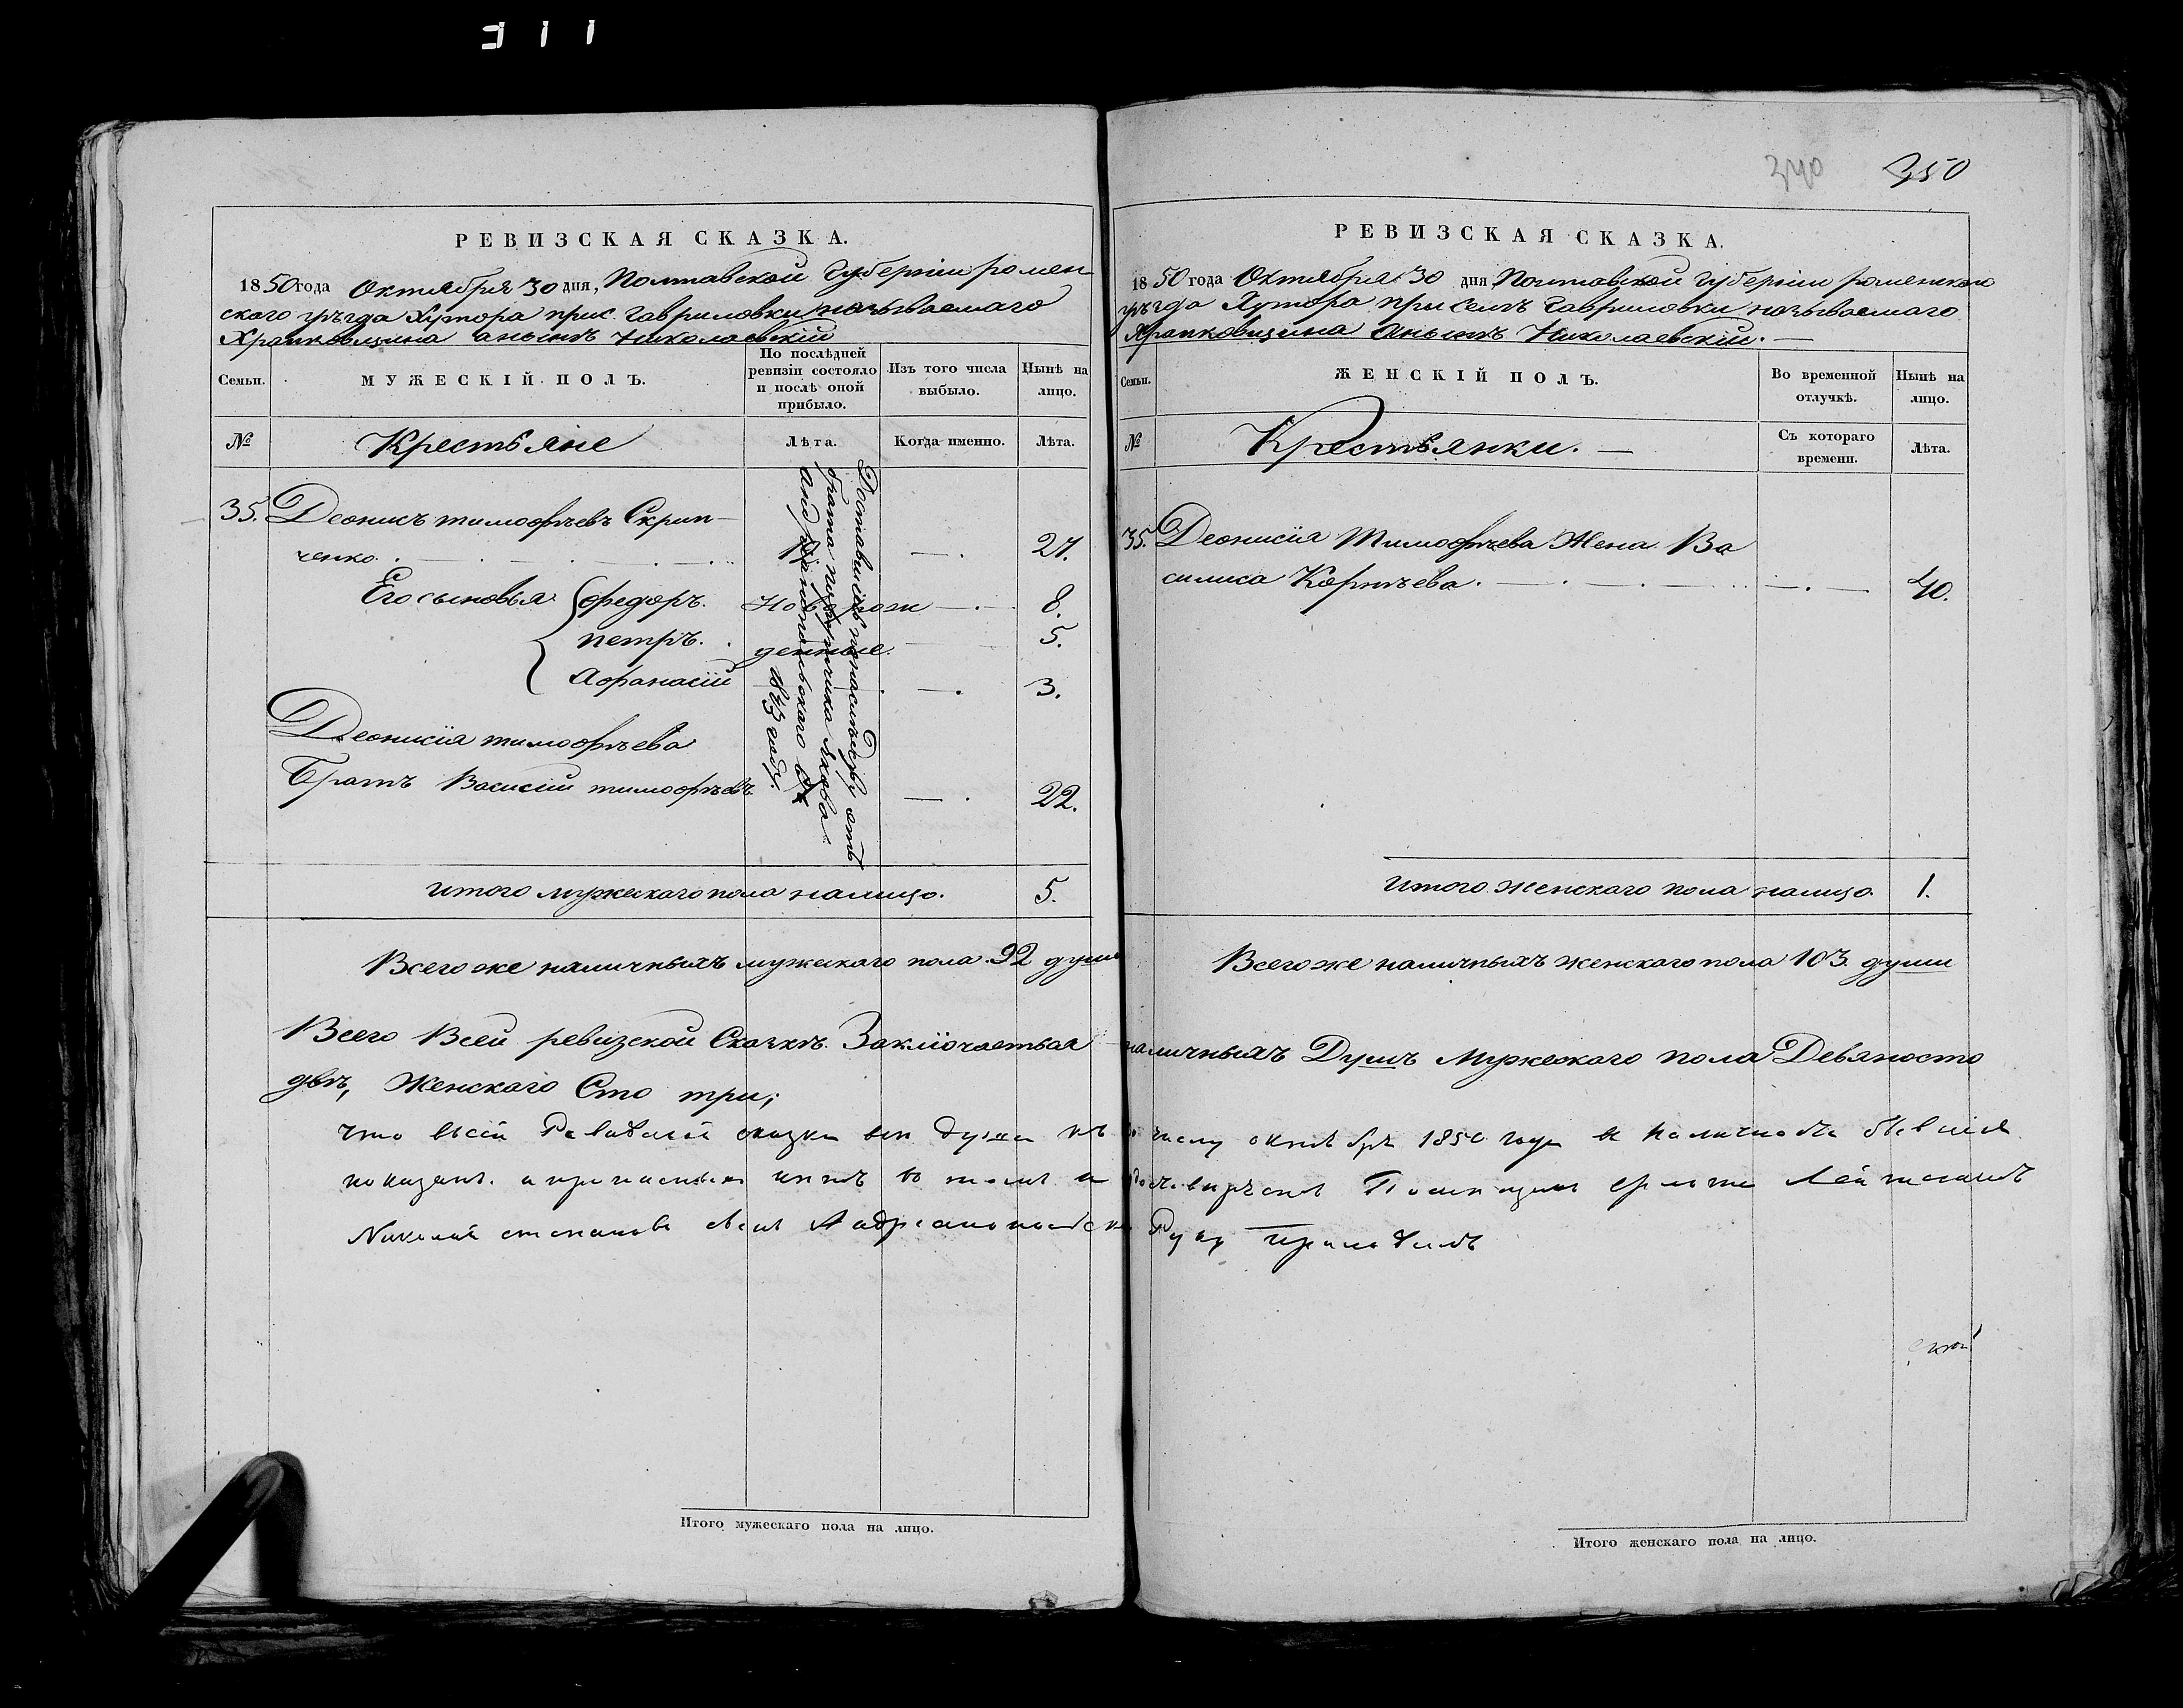 350
340
РЕВИЗСКАЯ СКАЗКА.
1850 года Октября 30 дня, Полтавской Губерніи ромен-
ского уѣзда Хутора при с. Гавриловки называемаго
Храпковщина анынѣ Николаевскій
Семьи.
МУЖЕСКІЙ ПОЛЪ.
По послѣдней ревизіи состояло и послѣ оной прибыло.
Изъ того числа выбыло.
Нынѣ на лицо.
№
Крестьяне
Лѣта.
Когда именно.
Лѣта.
35. Деонисъ тимофѣевъ Скрип-
ченко. 27.
Его сыновья Федоръ. Новорож 8.
петръ. денные. 5.
Афанасій 3.
Деонисія тимофѣева
Братъ Василій тимофѣевъ 22.
Достались понаслѣдву отъ
брата подпоручика Якова
Андріянопольского Съ
1843 году.
итого мужескаго пола налицо. 5.
Всего же наличныхъ мужскаго пола 92 душъ
РЕВИЗСКАЯ СКАЗКА.
1850 года Октября 30 дня, Полтавской Губерніи роменского
уѣзда Хутора при селѣ Гавриловки называемаго
Храпковщина анынѣ Николаевскій.
Семьи.
ЖЕНСКІЙ ПОЛЪ.
Во временной отлучкѣ.
Нынѣ на лицо.
№
Крестьянки.
Съ котораго времени.
Лѣта.
35. Деонисія Тимофѣева Жена Ва
силиса Корнѣева. 40.
итого женскаго пола налицо. 1.
Всего же наличныхъ женскаго пола 103. души
Всего Всей ревизской Сказкѣ Заключается наличныхъ Душъ Мужескаго пола Девяносто
двѣ, Женскаго Сто три;
что въ сей сказки все души къ числу октября 1850 года въ наличности
показаны. въ томъ
Николай степановъ сынъ Андреанопольской Руку приложилъ
ской
Итого мужескаго пола на лицо.
Итого женскаго пола на лицо.